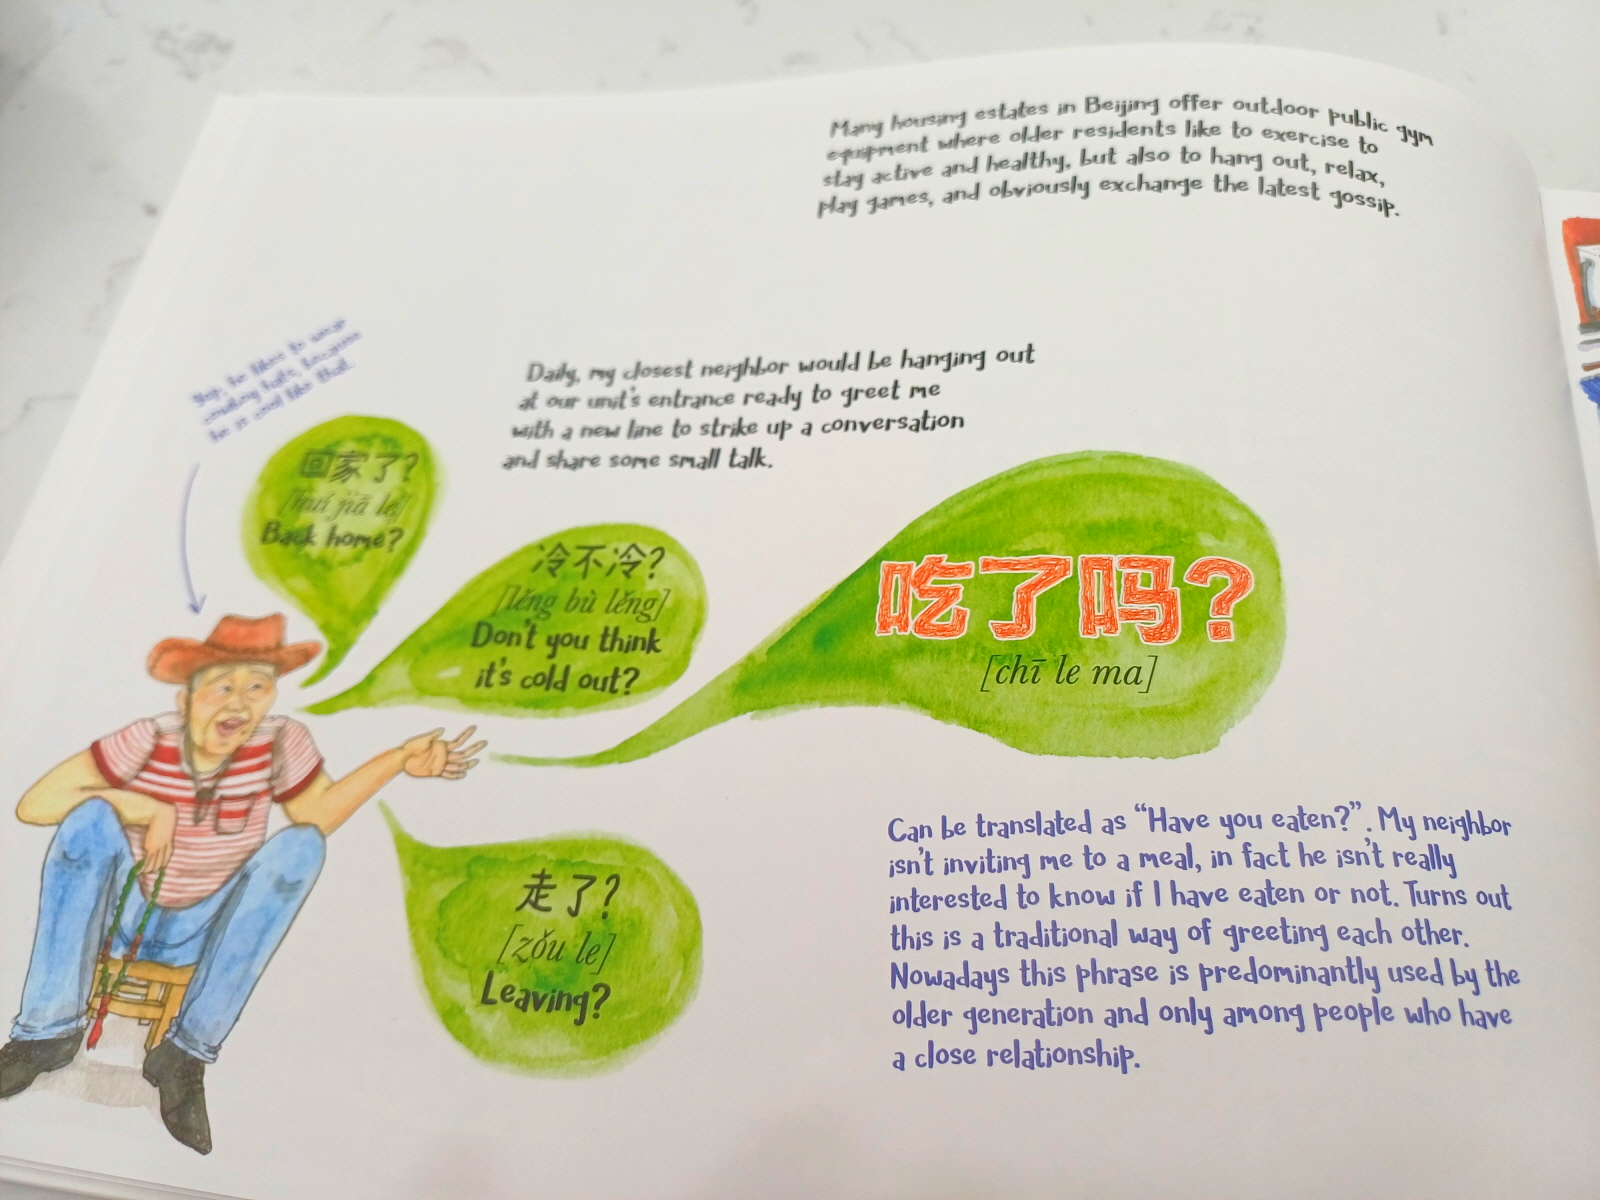 Many housing estates in Beijing offer outdoor public gym
equipment where older residents like to exercise to
stay active and healthy, but also to hang out, relax,
play games, and obviously exchange the latest gossip.
Daily, my closest neighbor would be hanging out
at our unit's entrance ready to greet me
with a new line to strike up a conversation
and share some small talk.
Yep, he likes to wear
cowboy hats, because
he is cool like that.
回家了?
[huí jiā le]
Back home?
冷不冷?
[lěng bù lěng]
Don't you think
it's cold out?
吃了吗?
[chī le ma]
走了?
[zǒu le]
Leaving?
Can be translated as “Have you eaten?”. My neighbor
isn't inviting me to a meal, in fact he isn't really
interested to know if I have eaten or not. Turns out
this is a traditional way of greeting each other.
Nowadays this phrase is predominantly used by the
older generation and only among people who have
a close relationship.